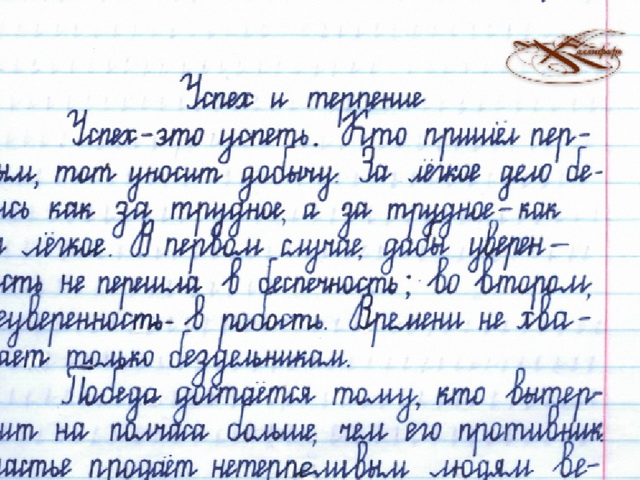 Успех и терпение
Успех-это успеть. Кто пришёл пер-
ым, тот уносит добычу. За лёгкое дело бе-
ись как за трудное, а за трудное-как
лёгкое. В первом случае, дабы уверен-
ость не перешла в беспечность; во втором,
еуверенность- в робость. Времени не хва-
ает только бездельникам.
Победа достаётся тому, кто вытер-
ит на полчаса больше, чем его противник.
частье продаёт нетерпеливым людям ве-